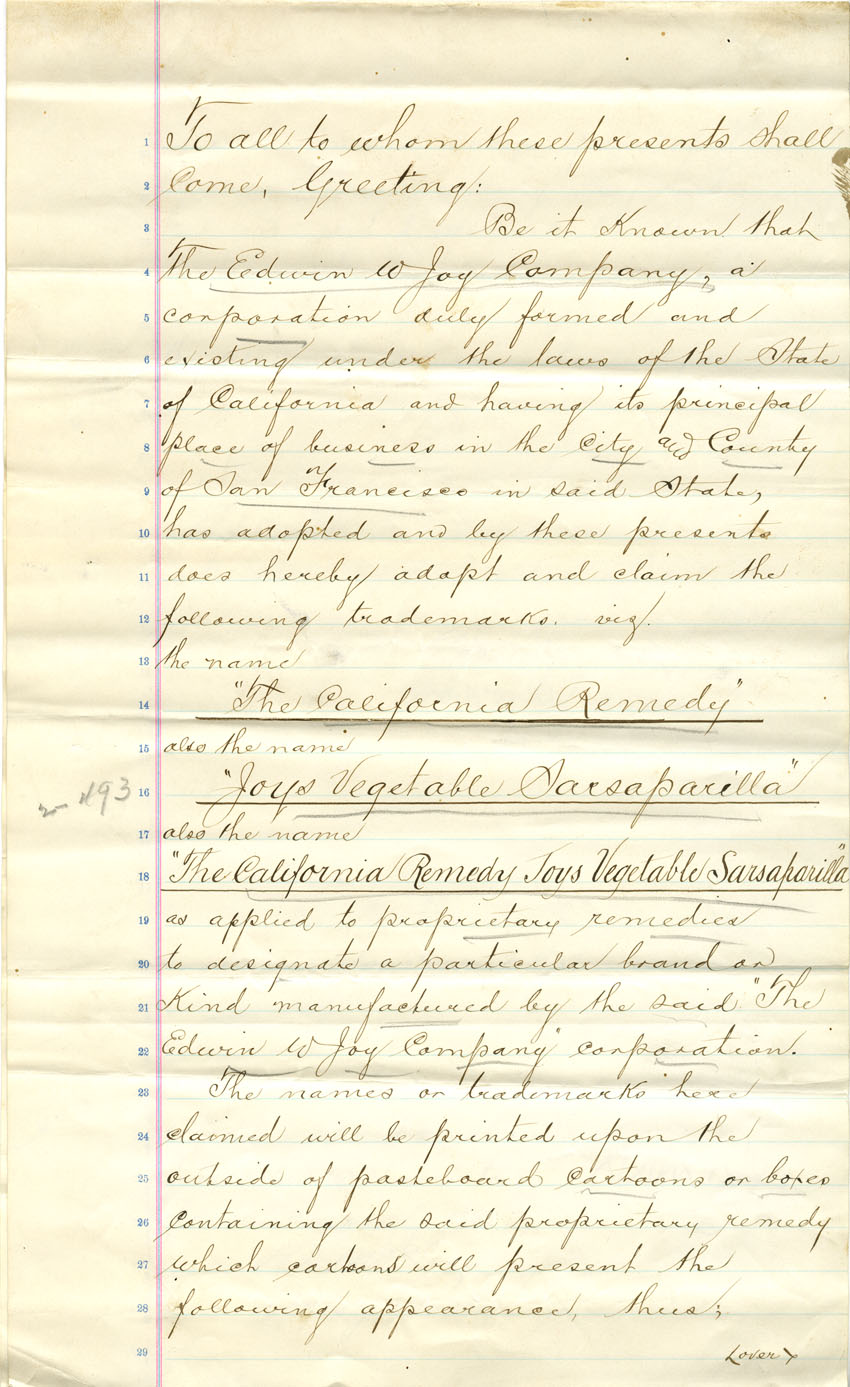 1 To all to whom these presents shall
2 Come, Greeting:
3 Be it Known that
4 The Edwin W Joy Company, a
5 corporation duly formed and
6 existing under the laws of the State
7 of California and having its principal
8 place of business in the City and County
9 of San Francisco in said State,
10 has adopted and by these presents
11 does hereby adopt and claim the
12 following trademarks. viz.
13 the name
14 "The California Remedy"
15 also the name
16 "Joys Vegetable Sarsaparilla"
2493
17 also the name
18 "The California Remedy Joys Vegetable Sarsaparilla"
19 as applied to proprietary remedies
20 to designate a particular brand or
21 Kind manufactured by the said "The
22 Edwin W Joy Company" corporation.
23 The names or trademarks here
24 claimed will be printed upon the
25 outside of pasteboard cartoons or boxes
26 containing the said proprietary remedy
27 which cartoons will present the
28 following appearance, thus;
29 (over)